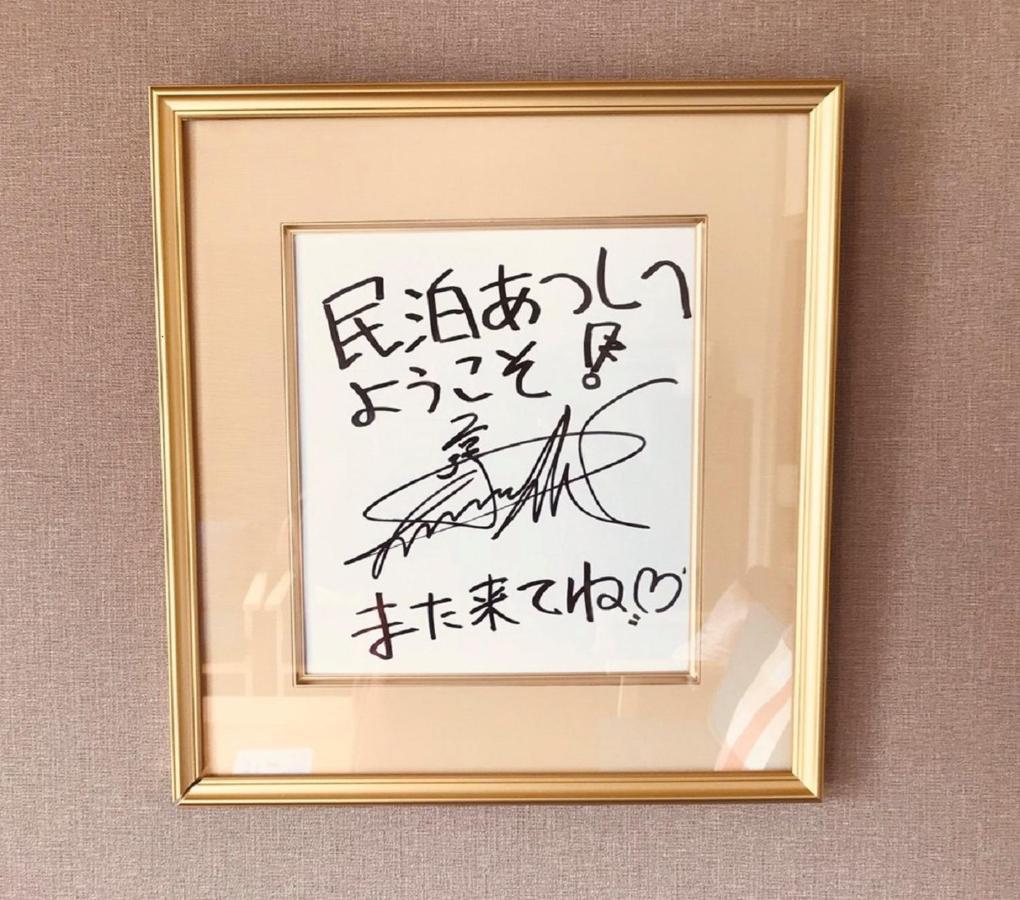 民泊あつしへ
ようこそ!
また来てね♡